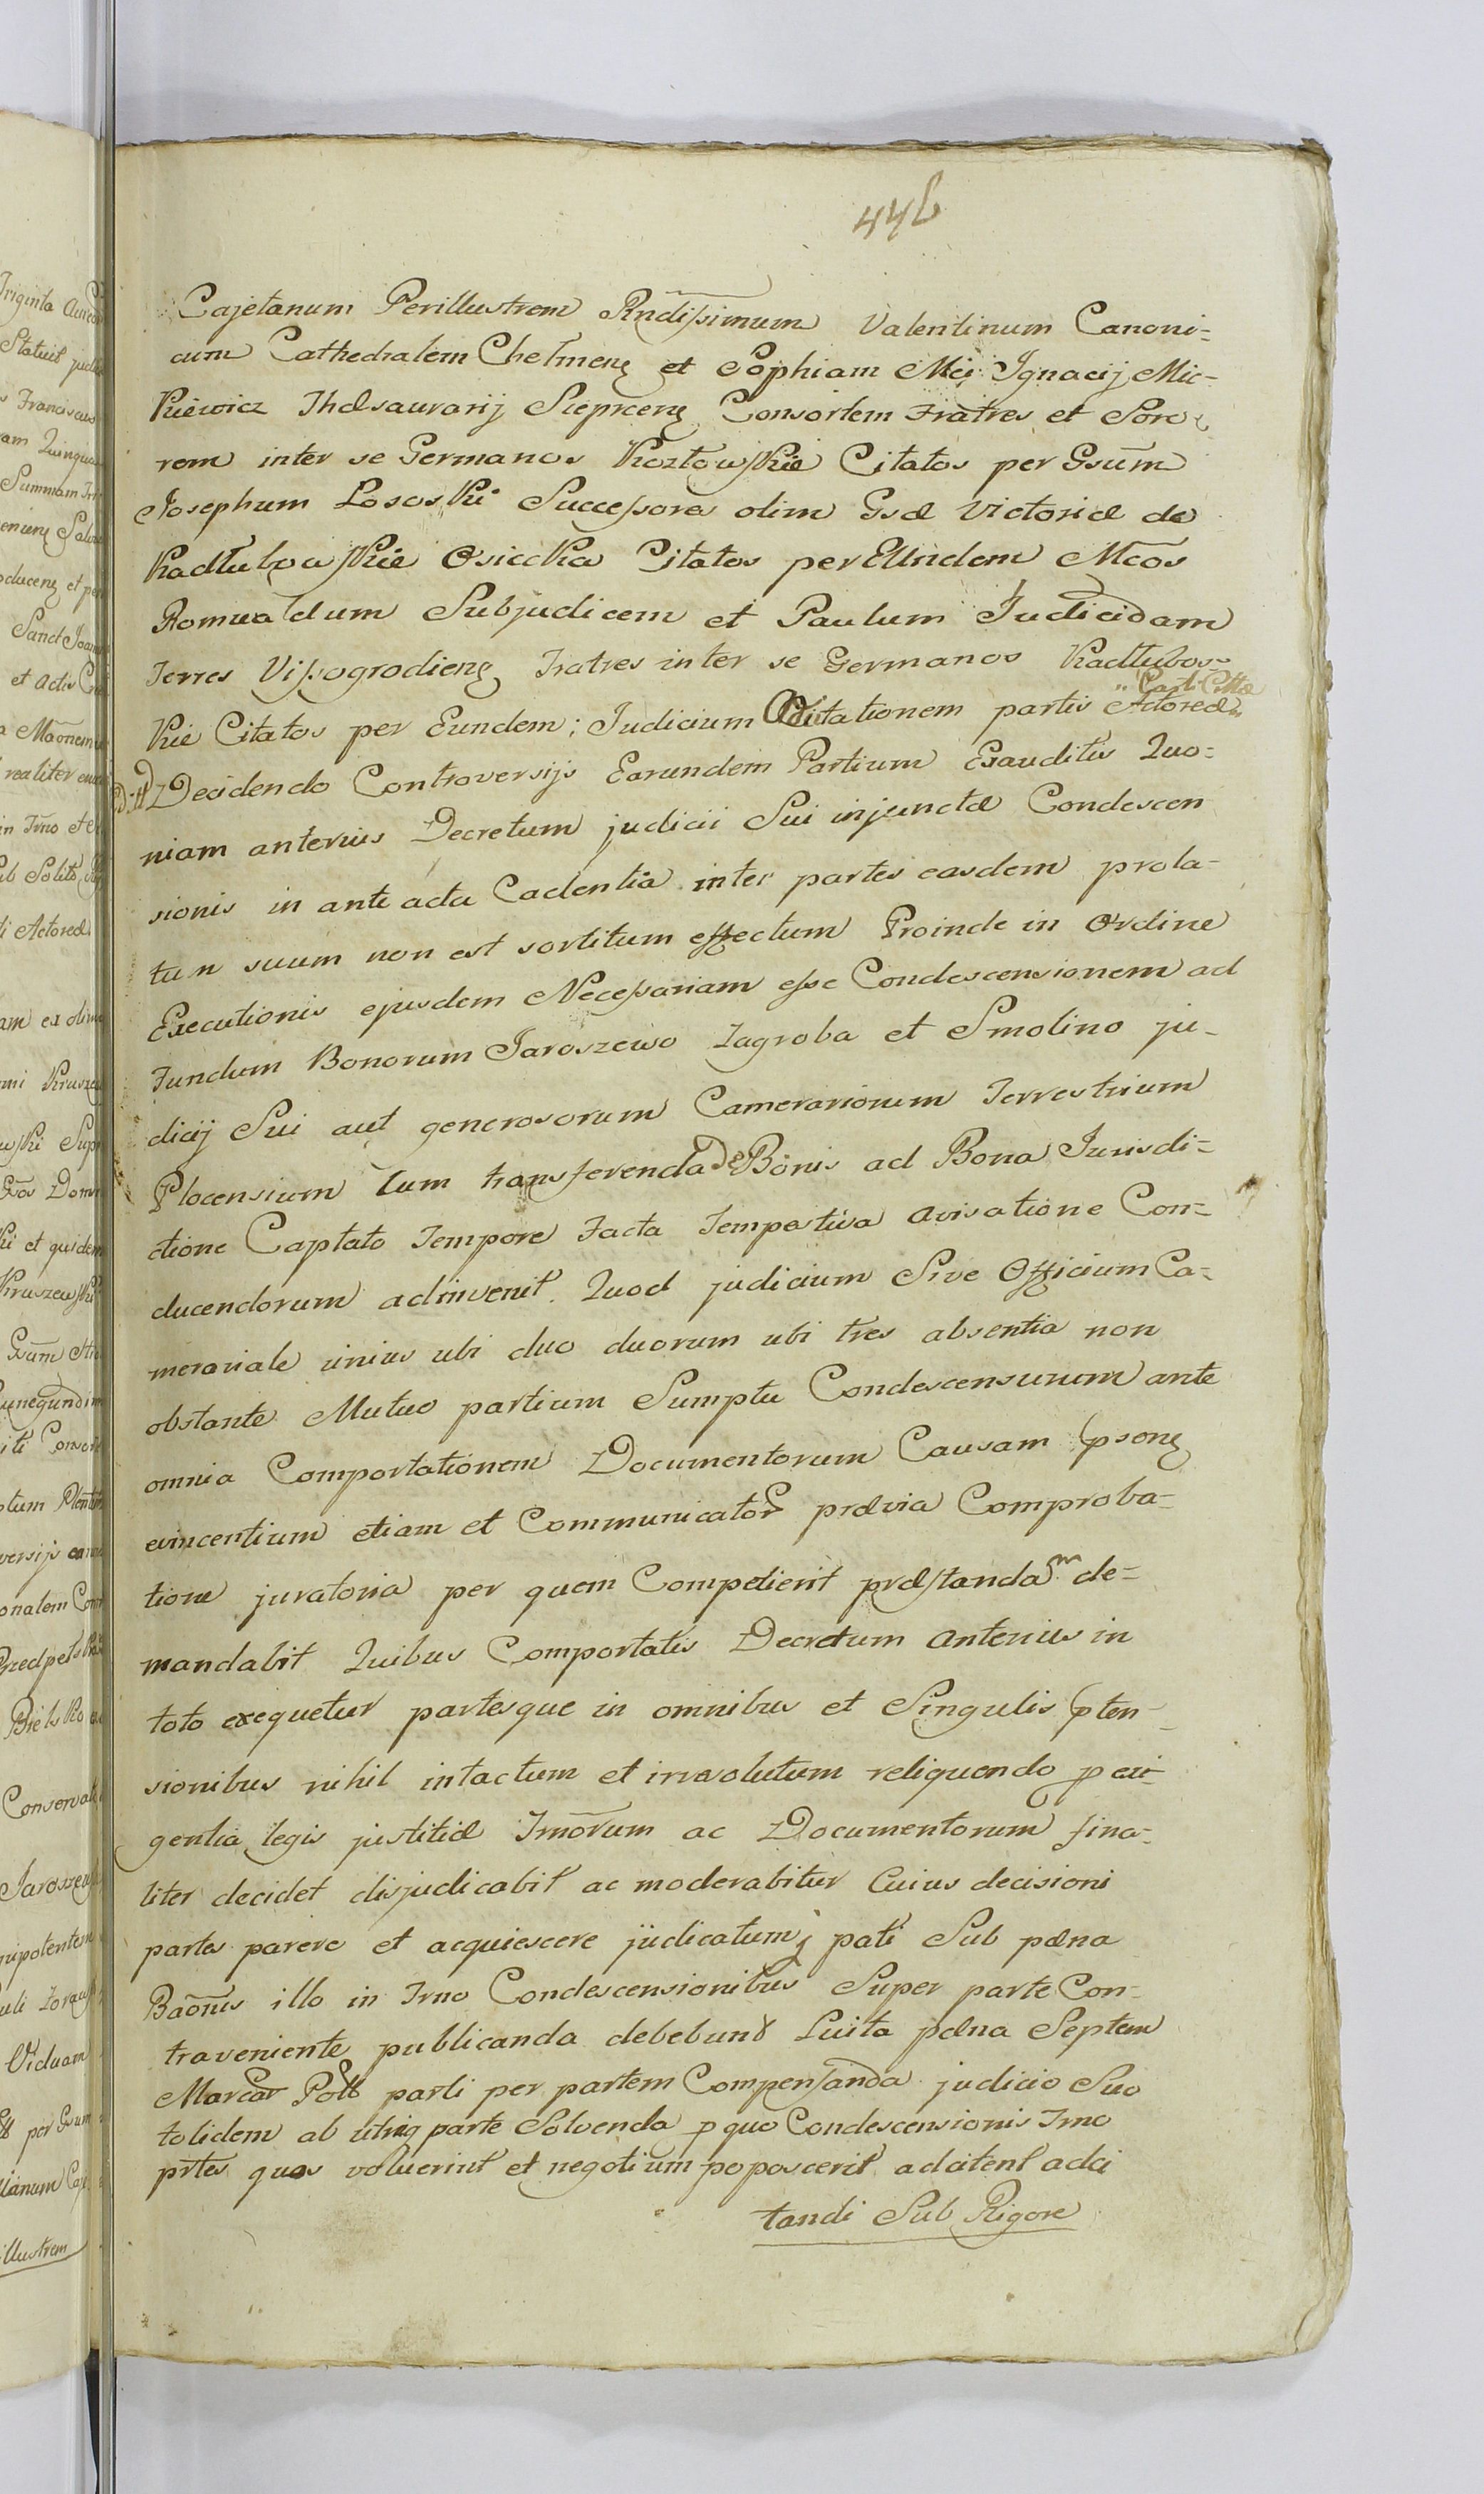 446
Cajetanum Perillustrem Rndissimum Valentinum Canoni-
cum Cathedralem Chelmens et Sophiam Mci Ignacij Mic-
kiewicz Thesaurarij Sieprcens Consortem Fratres et Soro-
rem inter se Germanos Kozłowskie Citatos per Gsum
Josephum Lososki Successores olim Gsæ Victoriæ de
Kadłubowskie Osiecka Citatos per Eundem Mcos
Romualdum Subjudicem et Paulum Judicidam
Terres Vissogrodiens Fratres inter se Germanos Kadłubos-
kie Citatos per Eundem; Judicium Citationem partis Actoreæ
Decidendo Controversijs Earundem Partium Exauditis Quo-
niam anterius Decretum judicii Sui injunctæ Condescen
sionis in ante acta Cadentia inter partes easdem prola-
tum suum non est sortitum effectum Proinde in Ordine
Executionis ejusdem Necessariam esse Condescensionem ad
Fundum Bonorum Jaroszewo Zagroba et Smolino ju-
dicij Sui aut generosorum Camerariorum Terrestrium
Plocensium tum transferenda de Bonis ad Bona Jurisdi-
ctione Captato Tempore Facta Tempestiva avisatione Con-
ducendorum adinvenit. Quod judicium Sive Officium Ca-
merariale unius ubi duo duorum ubi tres absentia non
obstante Mutuo partium Sumptu Condescensurum ante
omnia Comportationem Documentorum Causam psens
evincentium etiam et Communicator prævia Comproba-
tione juratoria per quem Competierit præstandam de-
mandabit Quibus Comportatis Decretum anterius in
toto exequetur partesque in omnibus et Singulis pten-
sionibus nihil intactum et irresolutum reliquendo p exi-
gentia legis justitiæ Trnorum ac Documentorum fina-
liter decidet disjudicabit ac moderabitur Cuius decisioni
partes parere et acquiescere judicatumq pati Sub pæna
Baonis illo in Trno Condescensionibus Super parte Con-
traveniente publicanda debebunt Luita pæna Septem
Marcar Polł parti per partem Compensanda judicio Suo
totidem ab utriq parte Solvenda p quo Condescensionis Trno
prtes quos voluerint et negotium poposcerit adcitent adci
tandi Sub Rigore